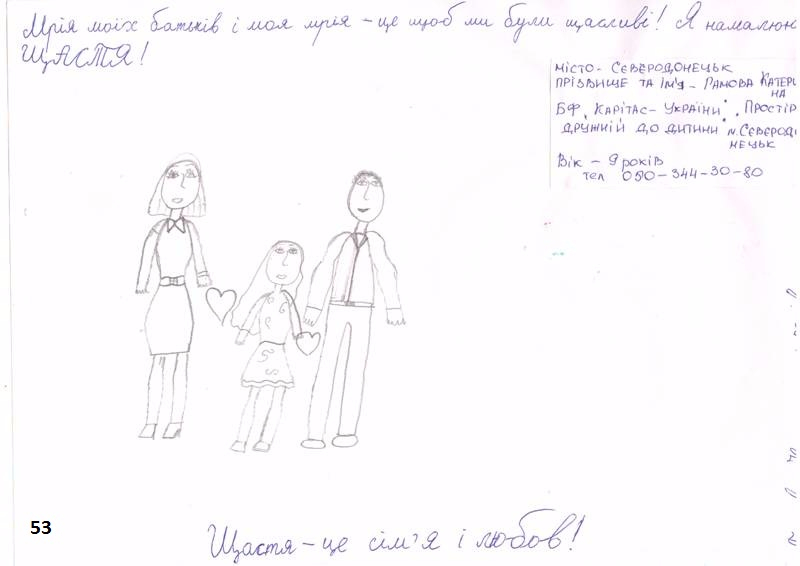 Мрія моїх батьків і моя мрія – це щоб ми були щасливі! Я намалюю
ЩАСТЯ!
МІСТО - СЄВЕРОДОНЕЦЬК
ПРІЗВИЩЕ ТА ІМ'Я - РАМОВА КАТЕРИ
НА
БФ „КАРІТАС – УКРАЇНИ", ПРОСТІР
ДРУЖНІЙ ДО ДИТИНИ м. СЄВЕРОДО
НЕЦЬК
Вік – 9 років
тел 050-344-30-80
53
Щастя – це сім'я і любов!